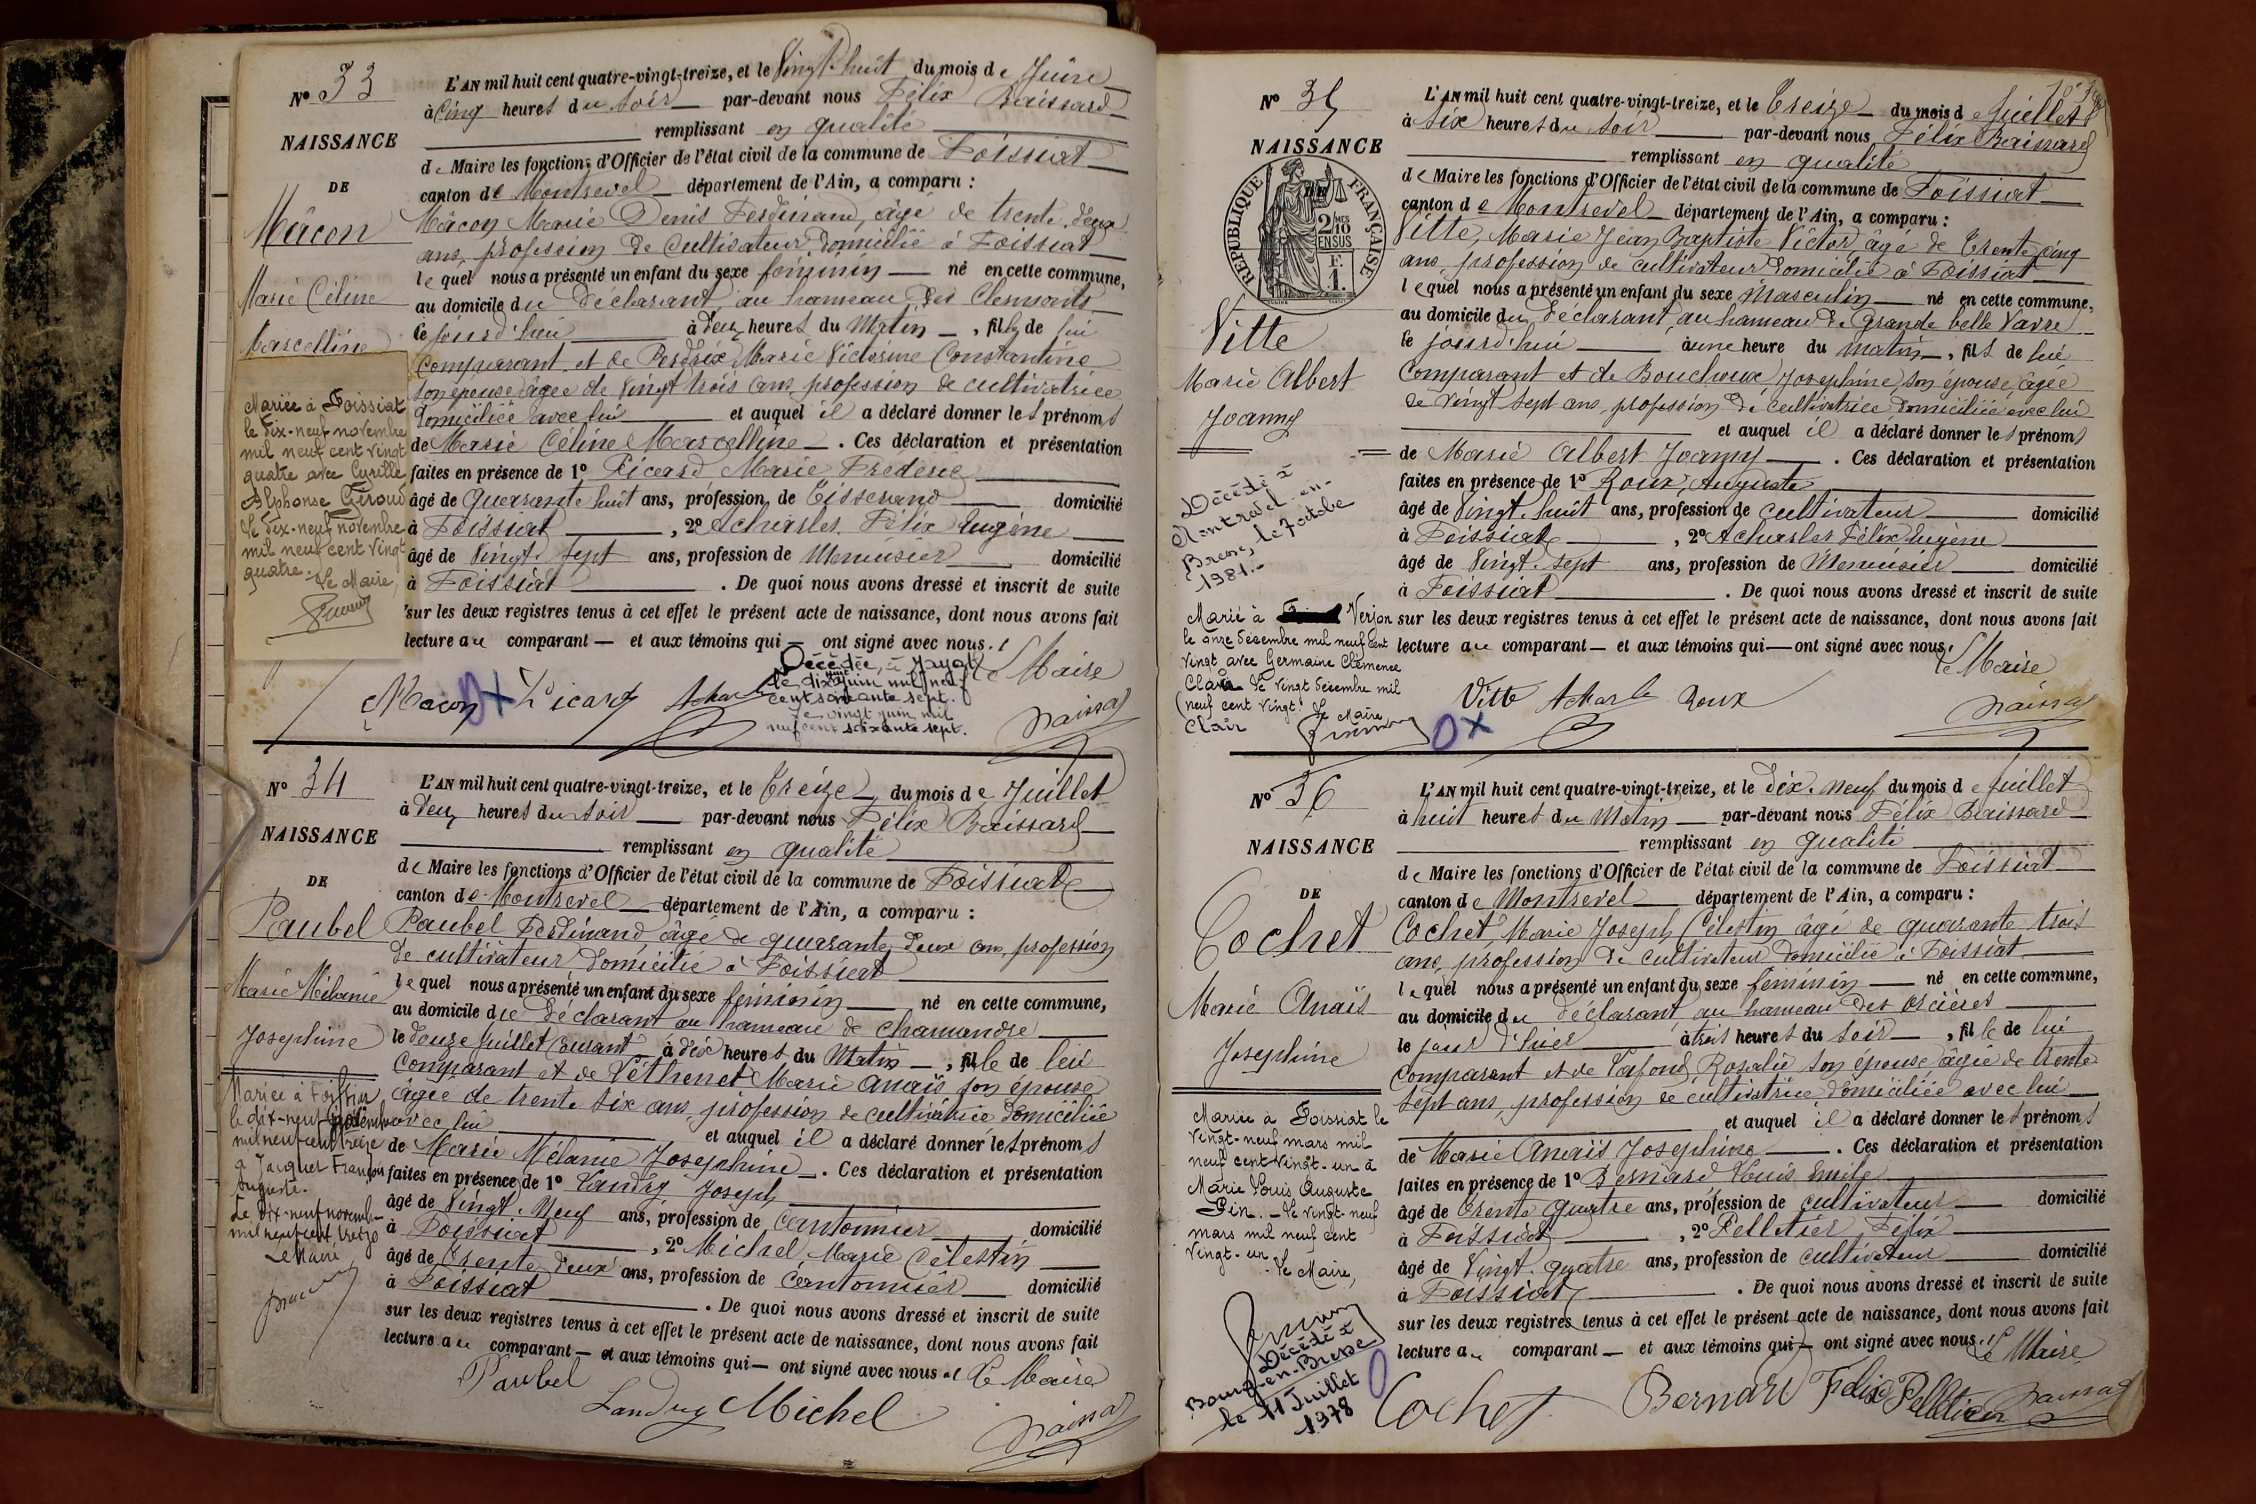 N° 33
NAISSANCE
DE
Mâcon
Marie Céline
Marcelline
Mariée à Foissiat
le dix-neuf novembre
mil neuf cent vingt
quatre avec Cyrille
Alphonse
Le dix-neuf novembre
mil neuf cent vingt
quatre. Le Maire,
L'AN mil huit cent quatre-vingt-treize, et le Vingt-huit du mois de Juin
à Cinq heures du soir par-devant nous Félix Baissard
remplissant en qualité
de Maire les fonctions d'Officier de l'état civil de la commune de Foissiat
canton de Montrevel département de l'Ain, a comparu :
Mâcon Marie Denis Ferdinand, âgé de trente deux
ans, profession de cultivateur domicilié à Foissiat
lequel nous a présenté un enfant du sexe féminin né en cette commune,
au domicile du déclarant au hameau des Clermonts
ce jourd'hui à deux heures du Matin, fille de lui
comparant et de Perdrix Marie Victorine Constantine
son épouse âgée de vingt trois ans profession de cultivatrice
domiciliée avec lui et auquel il a déclaré donner les prénoms
de Marie Céline Marcelline. Ces déclaration et présentation
faites en présence de 1° Picard Marie Frédéric
âgé de quarante huit ans, profession, de Tisserand domicilié
à Foissiat, 2° Acharles Félix Eugène
âgé de Vingt sept ans, profession de Menuisier domicilié
à Foissiat. De quoi nous avons dressé et inscrit de suite
sur les deux registres tenus à cet effet le présent acte de naissance, dont nous avons fait
lecture au comparant et aux témoins qui ont signé avec nous.
Décédée à Jayat
le dix juin mil neuf
cent soixante sept.
Le vingt juin mil
neuf cent soixante sept.
Le Maire
Macon Picard Acharle Baissard
N° 34
NAISSANCE
DE
Paubel
Marie Mélanie
Joséphine
Mariée à Foissiat
le dix-neuf novembre
mil neuf cent treize
à Jacquet François
Auguste.
Le dix-neuf novembre
mil neuf cent treize
Le Maire
L'AN mil huit cent quatre-vingt-treize, et le Treize du mois de Juillet
à deux heures du soir par-devant nous Félix Baissard
remplissant en qualité
de Maire les fonctions d'Officier de l'état civil de la commune de Foissiat
canton de Montrevel département de l'Ain, a comparu :
Paubel Ferdinand âgé de quarante deux ans, profession
de cultivateur domicilié à Foissiat
lequel nous a présenté un enfant du sexe féminin né en cette commune,
au domicile du déclarant au hameau de Chamandre
le douze Juillet courant à dix heures du Matin, fille de lui
comparant et de Véthenet Marie Anaïs son épouse
âgée de trente six ans, profession de cultivatrice domiciliée
avec lui et auquel il a déclaré donner les prénoms
de Marie Mélanie Joséphine. Ces déclaration et présentation
faites en présence de 1° Landry Joseph
âgé de Vingt-Neuf ans, profession de cantonnier domicilié
à Foissiat, 2° Michel Marie Célestin
âgé de trente deux ans, profession de cantonnier domicilié
à Foissiat. De quoi nous avons dressé et inscrit de suite
sur les deux registres tenus à cet effet le présent acte de naissance, dont nous avons fait
lecture au comparant et aux témoins qui ont signé avec nous. Le Maire
Paubel
Landry Michel Baissard
N° 35
NAISSANCE
DE
RÉPUBLIQUE FRANÇAISE
2/10 MES
EN SUS
F.
1.
Vitte
Marie Albert
Joanny
Décédé à
Montrevel-en-
Bresse, le 7 octobre
1981.
Marié à Verjon
le onze décembre mil neuf cent
vingt avec Germaine Clémence
Clair Le vingt décembre mil
neuf cent vingt. Le Maire
Clair
L'AN mil huit cent quatre-vingt-treize, et le Treize du mois de Juillet
à Six heures du soir par-devant nous Félix Baissard
remplissant en qualité
de Maire les fonctions d'Officier de l'état civil de la commune de Foissiat
canton de Montrevel département de l'Ain, a comparu :
Vitte, Marie Jean Baptiste Victor âgé de Trente cinq
ans, profession de cultivateur domicilié à Foissiat
lequel nous a présenté un enfant du sexe masculin né en cette commune,
au domicile du déclarant, au hameau de Grande belle Vavre
le jourd'hui à une heure du matin, fils de lui
comparant et de Bouchoux Joséphine, son épouse, âgée
de vingt sept ans, profession de cultivatrice domiciliée avec lui
et auquel il a déclaré donner les prénoms
de Marie Albert Joanny. Ces déclaration et présentation
faites en présence de 1° Roux, Auguste
âgé de Vingt-huit ans, profession de cultivateur domicilié
à Foissiat, 2° Acharles Félix Eugène
âgé de Vingt-sept ans, profession de Menuisier domicilié
à Foissiat. De quoi nous avons dressé et inscrit de suite
sur les deux registres tenus à cet effet le présent acte de naissance, dont nous avons fait
lecture au comparant et aux témoins qui ont signé avec nous.
Le Maire
Vitte Acharle Roux Baissard
N° 36
NAISSANCE
DE
Cochet
Marie Anaïs
Joséphine
Mariée à Foissiat le
vingt-neuf mars mil
neuf cent vingt-un à
Marie Louis Auguste
Pin. Le vingt-neuf
mars mil neuf cent
vingt-un
Le Maire,
Décédé à
Bourg-en-Bresse
le 11 Juillet
1978
L'AN mil huit cent quatre-vingt-treize, et le dix-neuf du mois de Juillet
à huit heures du Matin par-devant nous Félix Baissard
remplissant en qualité
de Maire les fonctions d'Officier de l'état civil de la commune de Foissiat
canton de Montrevel département de l'Ain, a comparu :
Cochet Marie Joseph Célestin âgé de quarante trois
ans, profession de cultivateur domicilié à Foissiat
lequel nous a présenté un enfant du sexe féminin né en cette commune,
au domicile du déclarant au hameau des Orcières
le jour d'hier à trois heures du soir, fille de lui
comparant et de Lafond Rosalie son épouse âgée de trente
sept ans, profession de cultivatrice domiciliée avec lui
et auquel il a déclaré donner les prénoms
de Marie Anaïs Joséphine. Ces déclaration et présentation
faites en présence de 1° Bernard Louis Emile
âgé de trente quatre ans, profession de cultivateur domicilié
à Foissiat, 2° Pelletier Félix
âgé de Vingt-quatre ans, profession de cultivateur domicilié
à Foissiat. De quoi nous avons dressé et inscrit de suite
sur les deux registres tenus à cet effet le présent acte de naissance, dont nous avons fait
lecture au comparant et aux témoins qui ont signé avec nous. Le Maire
Cochet Bernard Felix Pelletier Baissard